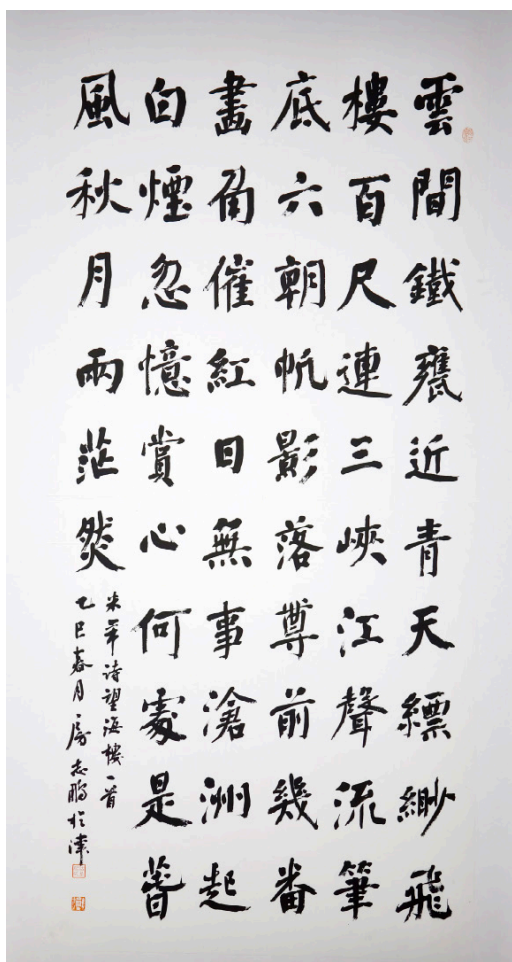 雲間鐵甕近青天縹緲飛
樓百尺連三峽江聲流筆
底六朝帆影落尊前幾番
畫角催紅日無事滄洲起
白煙忽憶賞心何處是萅
風秋月兩茫然
米芾诗望海楼一首
乙巳春月房志鹏於津